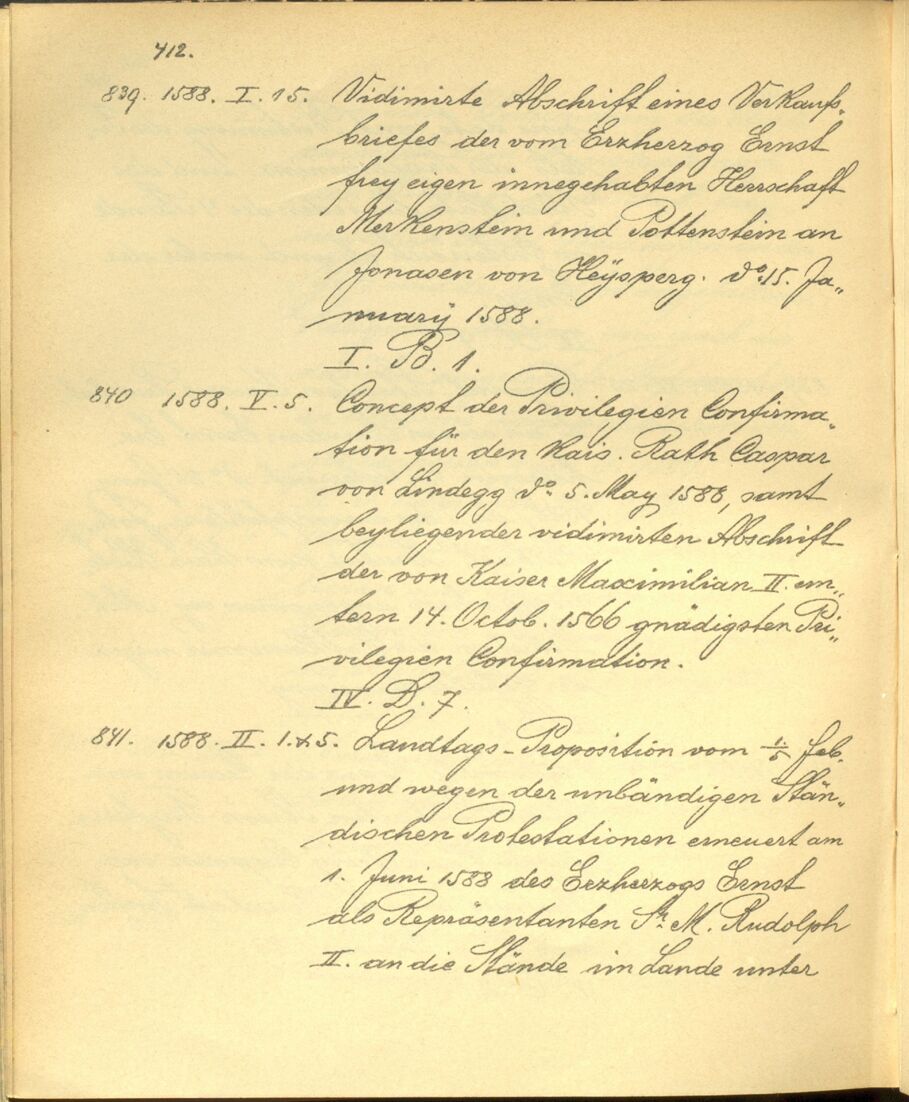 412.
839. 1588. I. 15. Vidimirte Abschrift eines Verkaufs„
briefes der vom Erzherzog Ernst
frey eigen innegehabten Herrschaft
Merkenstein und Pottenstein an
Jonasen von Heÿsperg. do. 15. Ja„
nuarÿ 1588.
I. B. 1.
840 1588. V. 5. Concept der Privilegien Confirma„
tion für den kais. Rath Caspar
von Lindegg do. 5. May 1588, samt
beyliegender vidimirten Abschrift
der von Kaiser Maximilian II. un„
tern 14. Octob. 1566 gnädigsten Pri„
vilegien Confirmation.
IV. D. 7.
841. 1588. II. 1. & 5. Landtags-Proposition vom 1./5 Feb.
und wegen der unbändigen Stän„
dischen Protestationen erneuert am
1. Juni 1588 des Erzherzogs Ernst
als Repräsentanten Sr. M. Rudolph
II. an die Stände im Lande unter